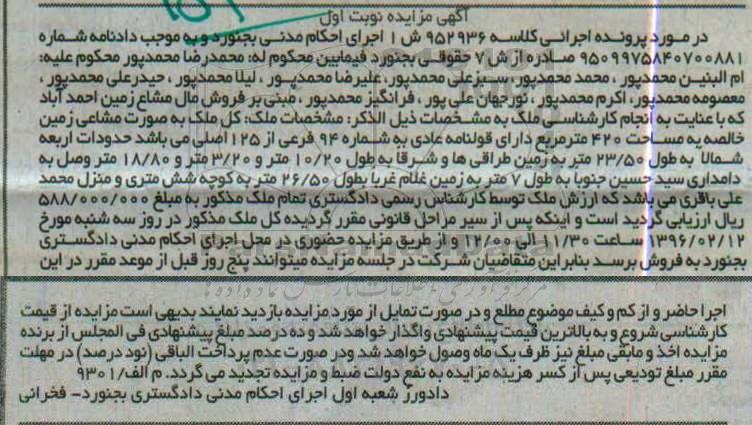 آگهی مزایده نوبت اول
در مورد پرونده اجرائی کلاسه ۹۵۲۹۳۶ ش ۱ اجرای احکام مدنی بجنورد و به موجب دادنامه شماره
۹۵۰۹۹۷۵۸۴۰۷۰۰۸۸۱ صادره از ش ۷ حقوقی بجنورد فیمابین محکوم له: محمدرضا محمدپور محکوم علیه:
ام البنین محمدپور ، محمد محمدپور، سبزعلی محمدپور، علیرضا محمدپور ، لیلا محمدپور ، حیدرعلی محمدپور ،
معصومه محمدپور، اکرم محمدپور ، نورجهان علی پور ، فرانگیز محمدپور ، مبنی بر فروش مال مشاع زمین احمد آباد
که با عنایت به انجام کارشناسی ملک به مشخصات ذیل الذکر: مشخصات ملک: کل ملک به صورت مشاعی زمین
خالصه به مساحت ۴۲۰ مترمربع دارای قولنامه عادی به شماره ۹۴ فرعی از ۱۲۵ اصلی می باشد حدودات اربعه
شمالا به طول ۲۳/۵۰ متر به زمین طراقی ها و شرقا به طول ۱۰/۲۰ متر و ۳/۲۰ متر و ۱۸/۸۰ متر وصل به
دامداری سید حسین جنوبا به طول ۷ متر به زمین غلام غربا بطول ۲۶/۵۰ متر به کوچه شش متری و منزل محمد
علی باقری می باشد که ارزش ملک توسط کارشناس رسمی دادگستری تمام ملک مذکور به مبلغ ۵۸۸/۰۰۰/۰۰۰
ریال ارزیابی گردید است و اینکه پس از سیر مراحل قانونی مقرر گردیده کل ملک مذکور در روز سه شنبه مورخ
۱۳۹۶/۰۲/۱۲ ساعت ۱۱/۳۰ الی ۱۲/۰۰ و از طریق مزایده حضوری در محل اجرای احکام مدنی دادگستری
بجنورد به فروش برسد بنابراین متقاضیان شرکت در جلسه مزایده میتوانند پنج روز قبل از موعد مقرر در این
اجرا حاضر و از کم و کیف موضوع مطلع و در صورت تمایل از مورد مزایده بازدید نمایند بدیهی است مزایده از قیمت
کارشناسی شروع و به بالاترین قیمت پیشنهادی واگذار خواهد شد و ده درصد مبلغ پیشنهادی فی المجلس از برنده
مزایده اخذ و مابقی مبلغ نیز ظرف یک ماه وصول خواهد شد ودر صورت عدم پرداخت الباقی (نود درصد) در مهلت
مقرر مبلغ تودیعی پس از کسر هزینه مزایده به نفع دولت ضبط و مزایده تجدید می گردد. م الف/۹۳۰۱
دادورز شعبه اول اجرای احکام مدنی دادگستری بجنورد- فخرانی